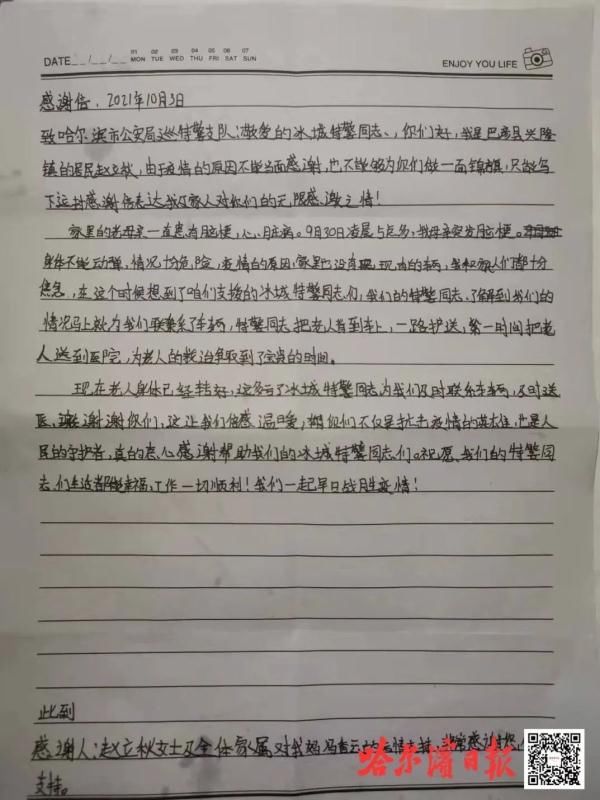 DATE__/__/__ 01 02 03 04 05 06 07
MON TUE WED THU FRI SAT SUN
ENJOY YOU LIFE
感谢信: 2021年10月3日
致哈尔滨市公安局巡特警支队:敬爱的冰城特警同志、你们好,我是巴彦县兴隆
镇的居民赵立秋,由于疫情的原因不能当面感谢,也不能够为你们做一面锦旗,只能写
下这封感谢信表达我及家人对你们的无限感激之情!
家里的老母亲一直患有脑梗,心脏病。9月30日凌晨5点多,我母亲突发脑梗。
身体不能动弹,情况十分危险,疫情的原因,家里已没有现成的车辆,我和家人们都十分
焦急,在这个时候想到了咱们支援的冰城特警同志们,我们的特警同志、了解到我们的
情况马上就为我们联系了车辆,特警同志把老人背到车上,一路护送,第一时间把老
人送到医院,为老人的救治争取到了宝贵的时间。
现在老人身体已经转好,这多亏了冰城特警同志为我们及时联系车辆,及时送
医、谢谢你们,这让我们倍感温暖,你们不仅是抗击疫情的英雄,也是人
民的守护者,真的衷心感谢帮助我们的冰城特警同志们。祝愿、我们的特警同
志、们生活幸福,工作一切顺利!我们一起早日战胜疫情!
此到
感谢人:赵立秋女士及全体家属对我妈冯
支持。
哈尔滨日报